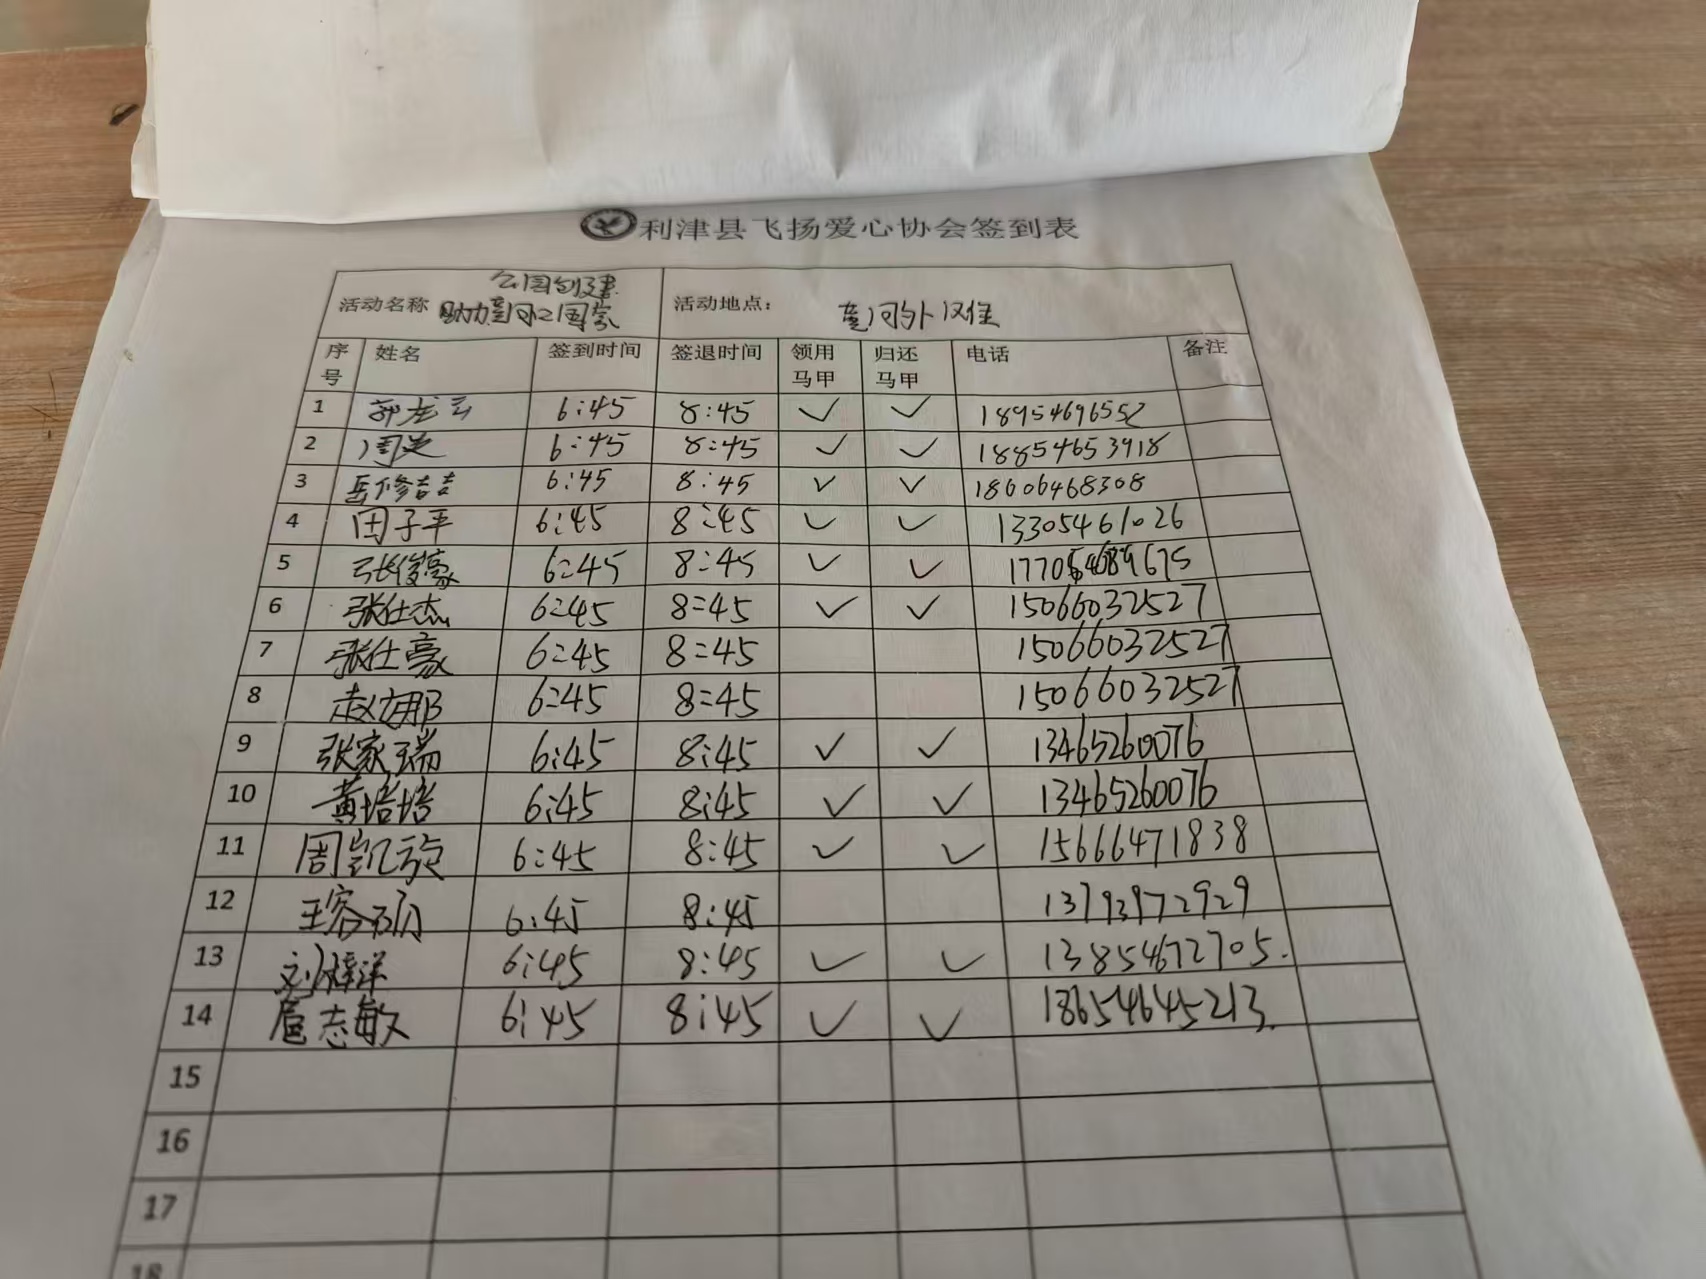 利津县飞扬爱心协会签到表
活动名称 公园创建 活动地点:
序号 姓名 签到时间 签退时间 领用马甲 归还马甲 电话 备注
1 6:45 8:45 ✓ ✓ 18954696552
2 6:45 8:45 ✓ ✓ 18854653918
3 岳修吉吉 6:45 8:45 ✓ ✓ 18606468308
4 田子平 6:45 8:45 ✓ ✓ 13305461026
5 张俊豪 6:45 8:45 ✓ ✓
6 张仕杰 6:45 8:45 ✓ ✓ 15066032527
7 张仕豪 6:45 8:45 15066032527
8 赵娜 6:45 8:45 15066032527
9 张家瑞 6:45 8:45 ✓ ✓ 13465260076
10 黄培培 6:45 8:45 ✓ ✓ 13465260076
11 周凯旋 6:45 8:45 ✓ ✓ 15666471838
12 6:45 8:45 13793972929
13 刘梓洋 6:45 8:45 ✓ ✓ 13854672705.
14 扈志敏 6:45 8:45 ✓ ✓ 18654645213.
15
16
17
18